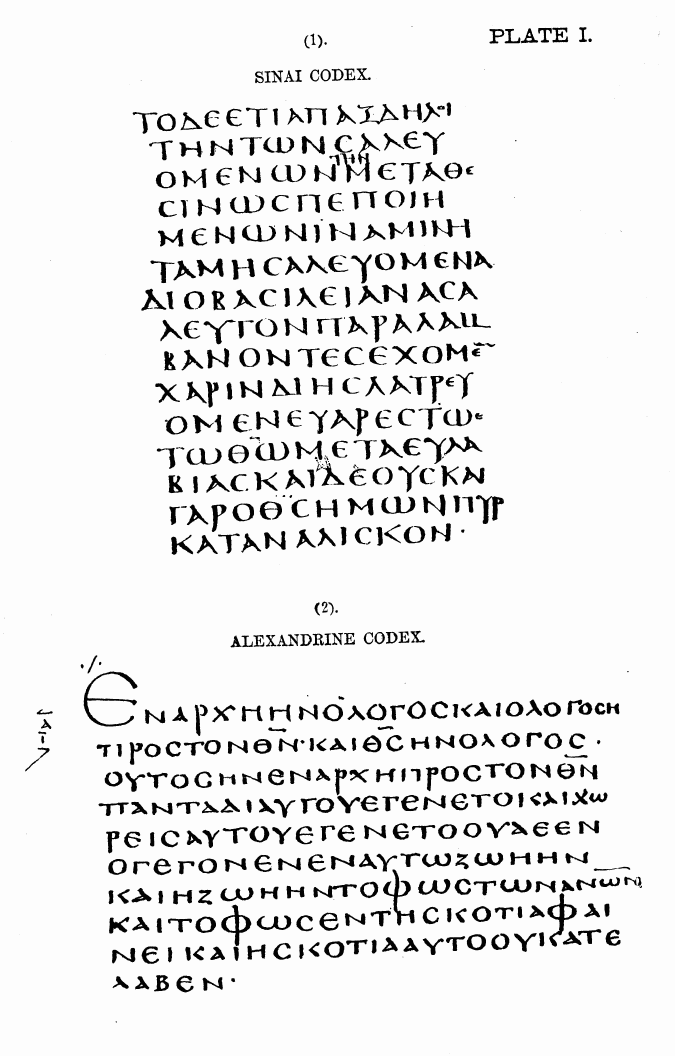 (1).
PLATE I.
SINAI CODEX.
ΤΟΔΕΕΤΙΑΠΑΞΔΗΛΟΙ
ΤΗΝΤΩΝϹΑΛΕΥ
ΤΗΝ
ΟΜΕΝΩΝΜΕΤΑΘΕ
ϹΙΝΩϹΠΕΠΟΙΗ
ΜΕΝΩΝΙΝΑΜΙΝΗ
ΤΑΜΗϹΑΛΕΥΟΜΕΝΑ
ΔΙΟΒΑϹΙΛΕΙΑΝΑϹΑ
ΛΕΥΤΟΝΠΑΡΑΛΑΜ
ΒΑΝΟΝΤΕϹΕΧΟΜΕ̅
ΧΑΡΙΝΔΙΗϹΛΑΤΡΕΥ
ΟΜΕΝΕΥΑΡΕϹΤΩϹ
ΤΩΘ̅Ω̅ΜΕΤΑΕΥΛΑ
ΒΙΑϹΚΑΙΔΕΟΥϹΚΑΙ
ΓΑΡΟΘ̅Ϲ̅ΗΜΩΝΠΥΡ
ΚΑΤΑΝΑΛΙϹΚΟΝ·
(2).
ALEXANDRINE CODEX.
ΕΝΑΡΧΗΗΝΟΛΟΓΟϹΚΑΙΟΛΟΓΟϹΗ
ΠΡΟϹΤΟΝΘ̅Ν̅·ΚΑΙΘ̅Ϲ̅ΗΝΟΛΟΓΟϹ·
ΟΥΤΟϹΗΝΕΝΑΡΧΗΠΡΟϹΤΟΝΘ̅Ν̅
ΠΑΝΤΑΔΙΑΥΤΟΥΕΓΕΝΕΤΟΚΑΙΧΩ
ΡΕΙϹΑΥΤΟΥΕΓΕΝΕΤΟΟΥΔΕΕΝ
ΟΓΕΓΟΝΕΝΕΝΑΥΤΩΖΩΗΗΝ
ΚΑΙΗΖΩΗΗΝΤΟΦΩϹΤΩΝΑ̅Ν̅Ω̅Ν̅
ΚΑΙΤΟΦΩϹΕΝΤΗϹΚΟΤΙΑΦΑΙ
ΝΕΙΚΑΙΗϹΚΟΤΙΑΑΥΤΟΟΥΚΑΤΕ
ΛΑΒΕΝ·